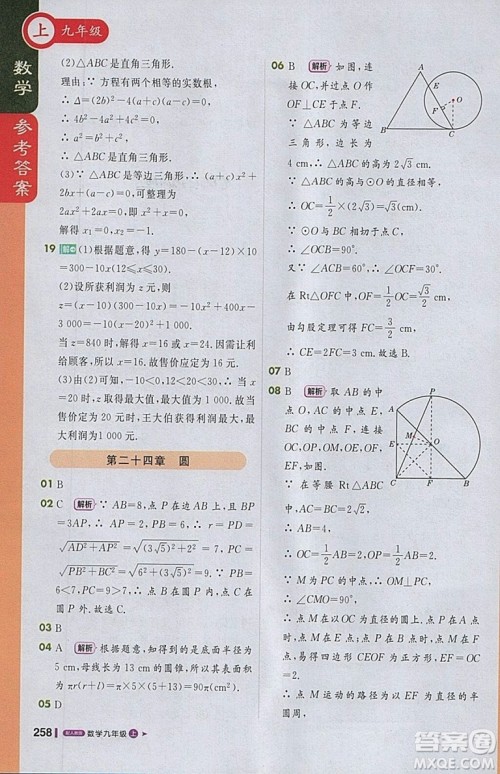 上 九年级
数学
参考答案
(2)△ABC是直角三角形.
理由:∵ 方程有两个相等的实数根,
∴ Δ=(2b)²-4(a+c)(a-c)=0.
∴ 4b²-4a²+4c²=0.
∴ a²=b²+c².
∴ △ABC是直角三角形.
(3)∵ △ABC是等边三角形,∴ (a+c)x²+
2bx+(a-c)=0,可整理为
2ax²+2ax=0.∴ x²+x=0.
解得 x₁=0,x₂=-1.
19 (1)根据题意,得 y=180-(x-12)×10
=300-10x(12≤x≤30).
(2)设所获利润为 z 元,则
z=(x-10)y=-10x²+400x-3 000.
当 z=840 时,解得 x=16 或 x=24.
∵ 尽快减少库存,
∴ x=16.故售价应定为 16 元.
(3)由(2)可知,-10<0,12<20<30,
∴ 当 x=20 时,z 取最大值,最大值为 1 000.
故当售价为 20 元时,王大伯获得利润最
大,为 1 000 元.
第二十四章 圆
01 B
02 C 解析 ∵ AB=8,点 P 在边 AB 上,且 BP
=3AP,∴ AP=2.∴ PD=
√(AD²+AP²)=√((3√5)²+2²)=7,PC=
√(PB²+BC²)=√(6²+(3√5)²)=9.∵ PB
=6<7,9>7,∴ 点 B 在圆 P 内,点 C 在圆 P
外.故选 C.
03 B
04 A 解析 根据题意,知得到的是底面半径为
5 cm,母线长为 13 cm 的圆锥,所以得到的几
何体的全面积是 π×5×13+π×5²=
90π(cm²).故选 A.
05 D
258 配人教版 数学九年级 上
06 B 解析 如图,连接
OC,并过点 O 作
OF⊥CE 于点 F,
∵ △ABC 为等边
三角形,边长为
4 cm,∴ △ABC 的高为 2√3 cm.
∵ △ABC 的高与 ⊙O 的直径相等,
∴ OC=1/2×2√3=√3(cm).
∵ ⊙O 与 BC 相切于点 C,
∴ ∠OCB=90°.
又∵ ∠ACB=60°,∴ ∠OCF=30°.
在 Rt△OFC 中,OF=1/2 OC=√3/2(cm),
由勾股定理可得 FC=3/2 cm.
∴ CE=2FC=3 cm.故选 B.
07 B
08 B 解析 取 AB 的中点
O,AC 的中点 E,BC 的
中点 F,连接 OC,OP,
OM,OE,OF,EF.
∵ 在等腰 Rt△ABC
中,AC=BC=4,
∴ AB=4√2.
∴ OC=1/2 AB=2√2,OP=1/2 AB=2√2.
∵ M 为 PC 的中点,∴ OM⊥PC.
∴ ∠CMO=90°.
∴ 点 M 在以 OC 为直径的圆上.当点 P 在点
A 时,点 M 在点 E;当点 P 在点 B 时,点 M
在点 F.易得四边形 CEOF 为正方形,EF=
OC=2√2,
∴ 点 M 运动的路径为以 EF 为直径的半圆.
∴ 点 M 运动的路径长为 1/2×2√2π=√2π.
故选 B.
A
E
F
O
B
C
A
P
M
E
O
B
C
F
答案圈
MXQE.COM